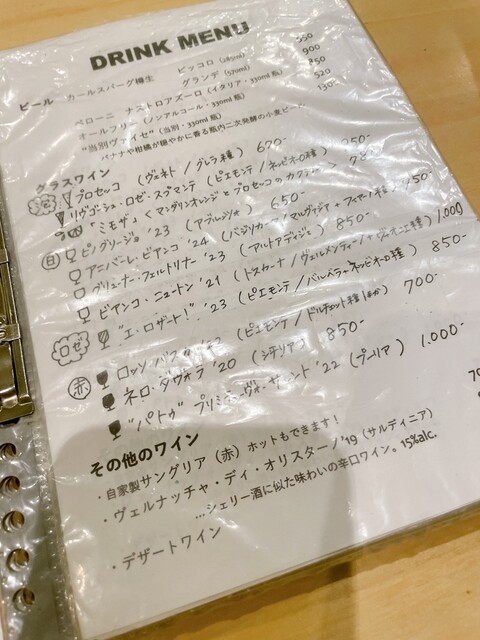 DRINK MENU
ビール カールスバーグ樽生 ピッコロ (285ml) 550
グランデ (570ml) 900
ペローニ ナストロアズーロ (イタリア・330ml 瓶) 850
オールフリー (ノンアルコール・330ml 瓶) 520
"当別ヴァイセ" (当別・330ml 瓶)
バナナや柑橘が穏やかに香る瓶内二次発酵の小麦ビール
グラスワイン
泡 プロセッコ (ヴェネト / グレラ種) 670-
リヴゴーシュ・ロゼ・スプマンテ (ピエモンテ / ネッビオーロ種)
"ミモザ" < マンダリンオレンジとプロセッコのカクテル >
白 ピノグリージョ '23 (アブルッツォ) 650-
アンバーレ・ビアンコ '24 (バジリカータ / マルヴァジア + フィアーノ種)
グリューナー・フェルトリナー '23 (アルトアディジェ) 850-
ビアンコ・ニュートン '21 (トスカーナ / ヴェルメンティーノ + ヴィオニエ種) 1,000
ロゼ "エ・ロザート!" '23 (ピエモンテ / バルベラ + ネッビオーロ種) 850-
赤 (ピエモンテ / ドルチェット種 700-
ネロ・ダヴォラ '20 (シチリア) 850-
"パトゥ" プリミティーヴォ '22 (プーリア) 1.000-
その他のワイン
・自家製サングリア (赤) ホットもできます!
・ヴェルナッチャ・ディ・オリスターノ '19 (サルディニア)
…シェリー酒に似た味わいの辛口ワイン。15%alc.
・デザートワイン